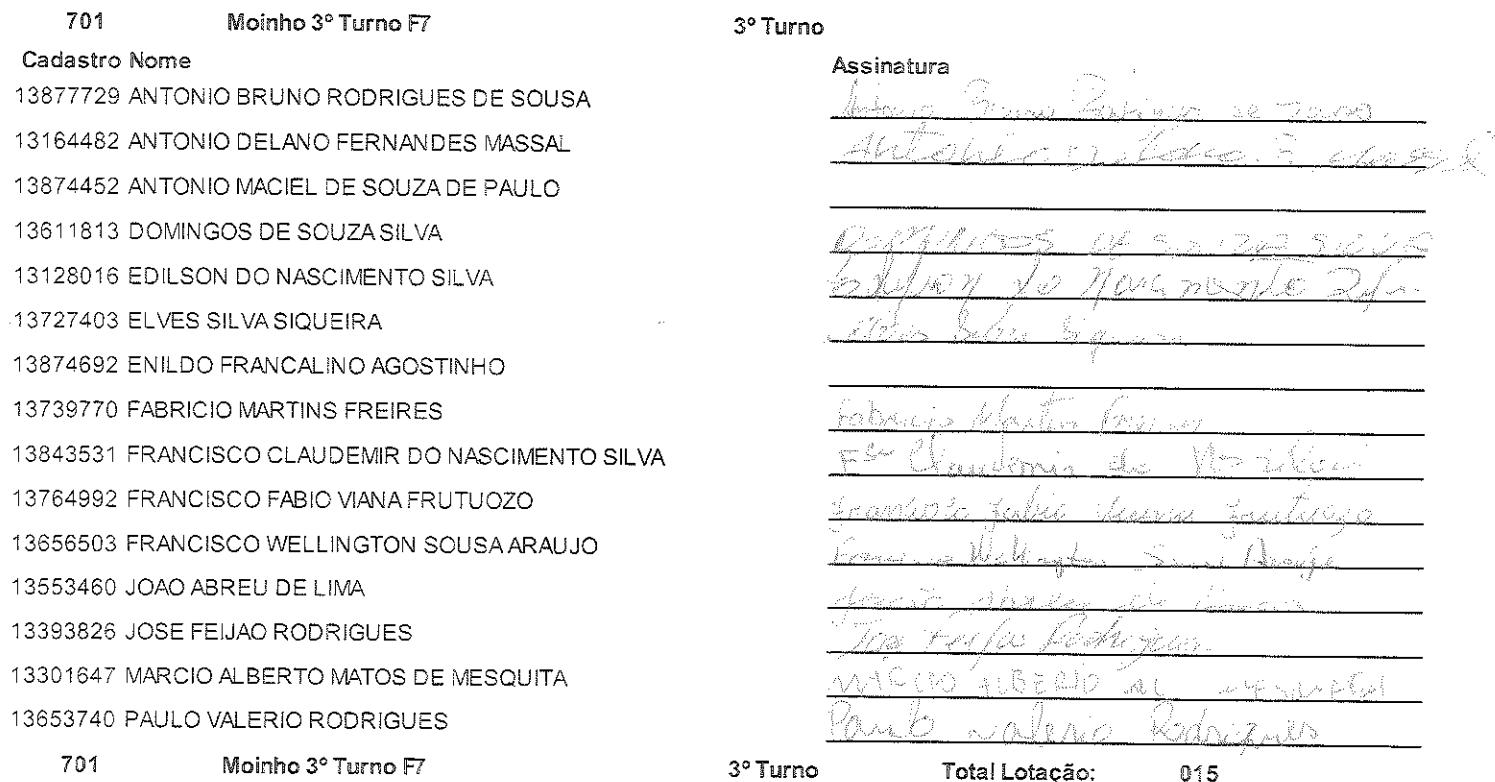 701 Moinho 3º Turno F7 3º Turno
Cadastro Nome Assinatura
13877729 ANTONIO BRUNO RODRIGUES DE SOUSA Antonio Bruno Rodrigues de
13164482 ANTONIO DELANO FERNANDES MASSAL Antonio
13874452 ANTONIO MACIEL DE SOUZA DE PAULO
13611813 DOMINGOS DE SOUZA SILVA DOMINGOS DE SOUZA SILVA
13128016 EDILSON DO NASCIMENTO SILVA Edilson do
13727403 ELVES SILVA SIQUEIRA Elves Silva Siqueira
13874692 ENILDO FRANCALINO AGOSTINHO
13739770 FABRICIO MARTINS FREIRES Fabricio Martins
13843531 FRANCISCO CLAUDEMIR DO NASCIMENTO SILVA Fco Claudemir do
13764992 FRANCISCO FABIO VIANA FRUTUOZO Francisco Fabio Viana Frutuozo
13656503 FRANCISCO WELLINGTON SOUSA ARAUJO Francisco Wellington Sousa Araujo
13553460 JOAO ABREU DE LIMA
13393826 JOSE FEIJAO RODRIGUES Jose Feijao Rodrigues
13301647 MARCIO ALBERTO MATOS DE MESQUITA MARCIO ALBERTO M
13653740 PAULO VALERIO RODRIGUES Paulo Valerio Rodrigues
701 Moinho 3º Turno F7 3º Turno Total Lotação: 015